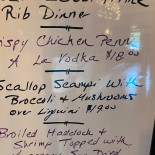 Rib Dinner
Crispy Chicken Penne
A La Vodka $18.00
Scallop Scampi With
Broccoli & Mushrooms
over Linguini $19.00
Broiled Haddock &
Shrimp Topped with